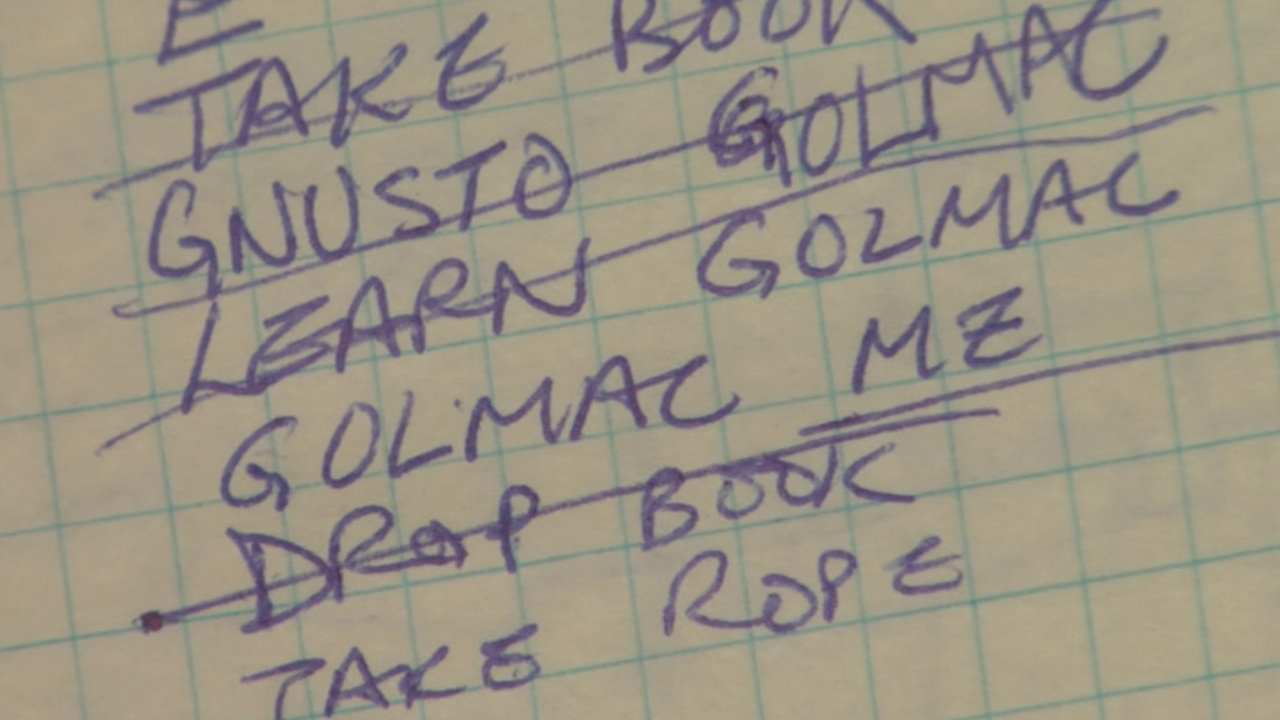 E
TAKE BOOK
GNUSTO GOLMAC
LEARN GOLMAC
GOLMAC ME
DROP BOOK
TAKE ROPE